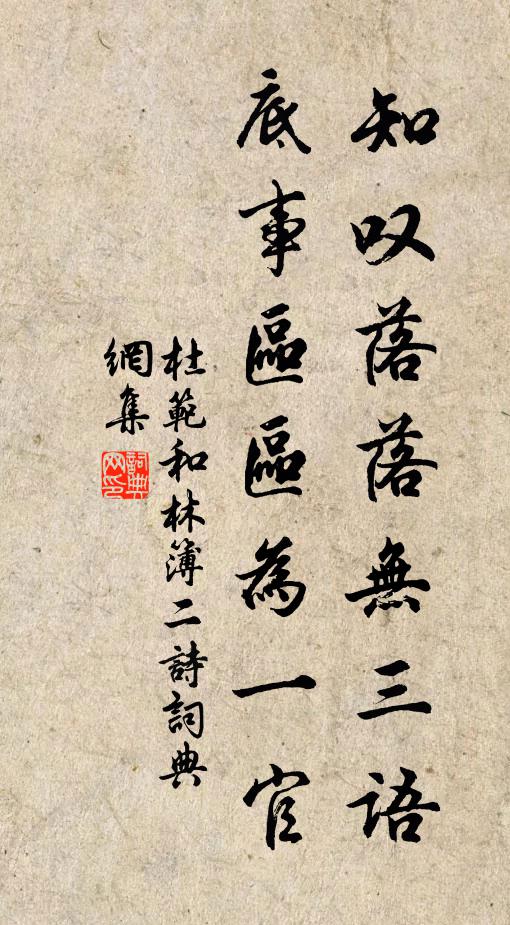 知叹落落無三語
底事區區為一官
杜範和林簿二詩詞典
網集
詞典
网印